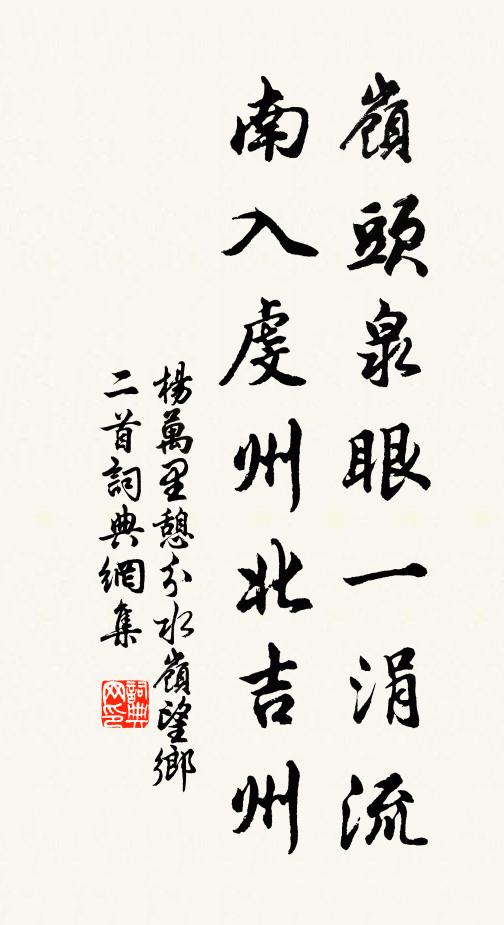 嶺頭泉眼一涓流
南入虔州北吉州
楊萬里憩分水嶺望鄉
二首詞典網集
詞典
网印